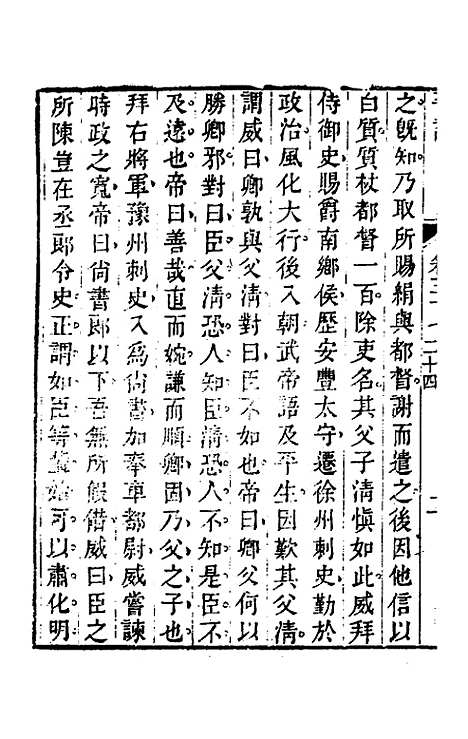 之旣知乃取所賜絹與都督謝而遣之後因他信以
白質質杖都督一百除吏名其父子清愼如此威拜
侍御史賜爵南鄉侯歷安豐太守遷徐州刺史勤於
政治風化大行後入朝武帝語及平生因歎其父清
謂威曰卿孰與父清對曰臣不如也帝曰卿父何以
勝卿邪對曰臣父清恐人知臣清恐人不知是臣不
及遠也帝曰善哉直而婉謙而順卿因乃父之子也
拜右將軍豫州刺史入爲尙書加奉車都尉威嘗諫
時政之寬帝曰尙書郎以下吾無所假借威曰臣之
所陳豈在丞郎令史正謂如臣等輩始可以肅化明